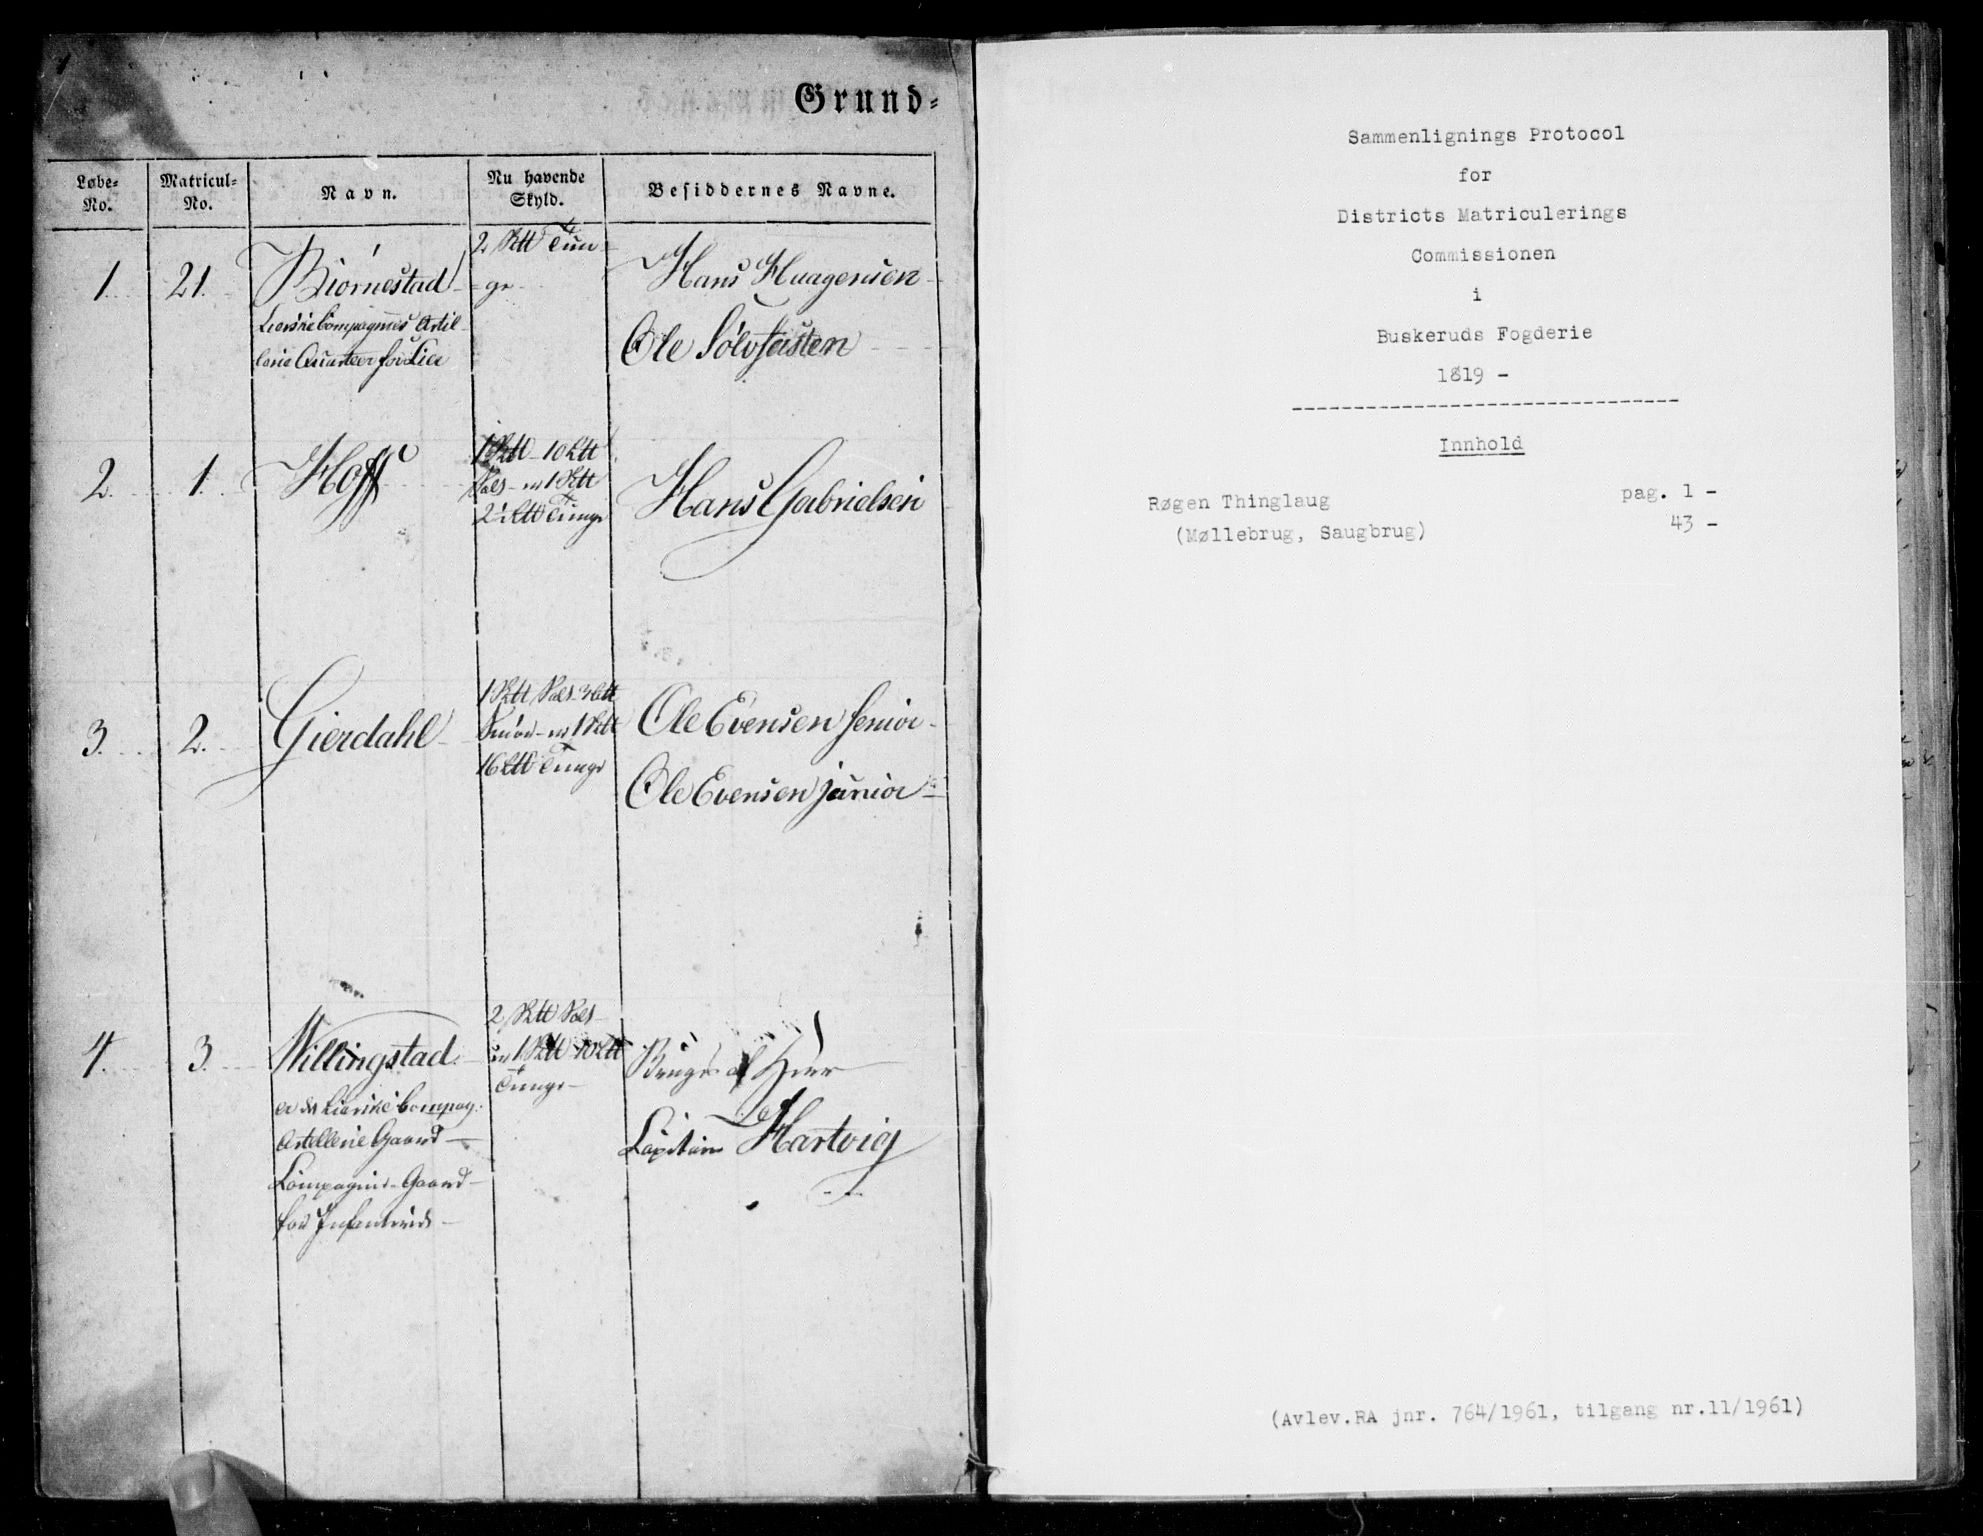 1
Grund=
Løbe=
No.
Matricul=
No.
Navn.
Nu havende
Skyld.
Besiddernes Navne.
1. 21. Biørnestad
Lierske Compagnies Artil-
lerie Quarteer for Lier
2 Sktt Tun-
ge
Hans Haagensen
Ole Sølvfesten
2. 1. Hoff
1 Sktt 10 Ltt
1 Sktt
2 Ltt Tunge
Hans Gabrielsen
3. 2. Gierdahl
1 Sktt 3 Ltt
1 Sktt
16 Ltt Tunge
Ole Evensen Senior
Ole Evensen junior
4. 3. Willingstad
er det Lierske Compag.
Artellerie Gaard
Compagnie-Gaard
for Infanteriet
2 Sktt
1 Sktt 10 Ltt
Tunge
Bruges af Herr
Capitain Hartvig
Sammenlignings Protocol
for
Districts Matriculerings
Commissionen
i
Buskeruds Fogderie
1819 -
--------------------------------
Innhold
Røgen Thinglaug pag. 1 -
(Møllebrug, Saugbrug) 43 -
(Avlev.RA jnr. 764/1961, tilgang nr.11/1961)